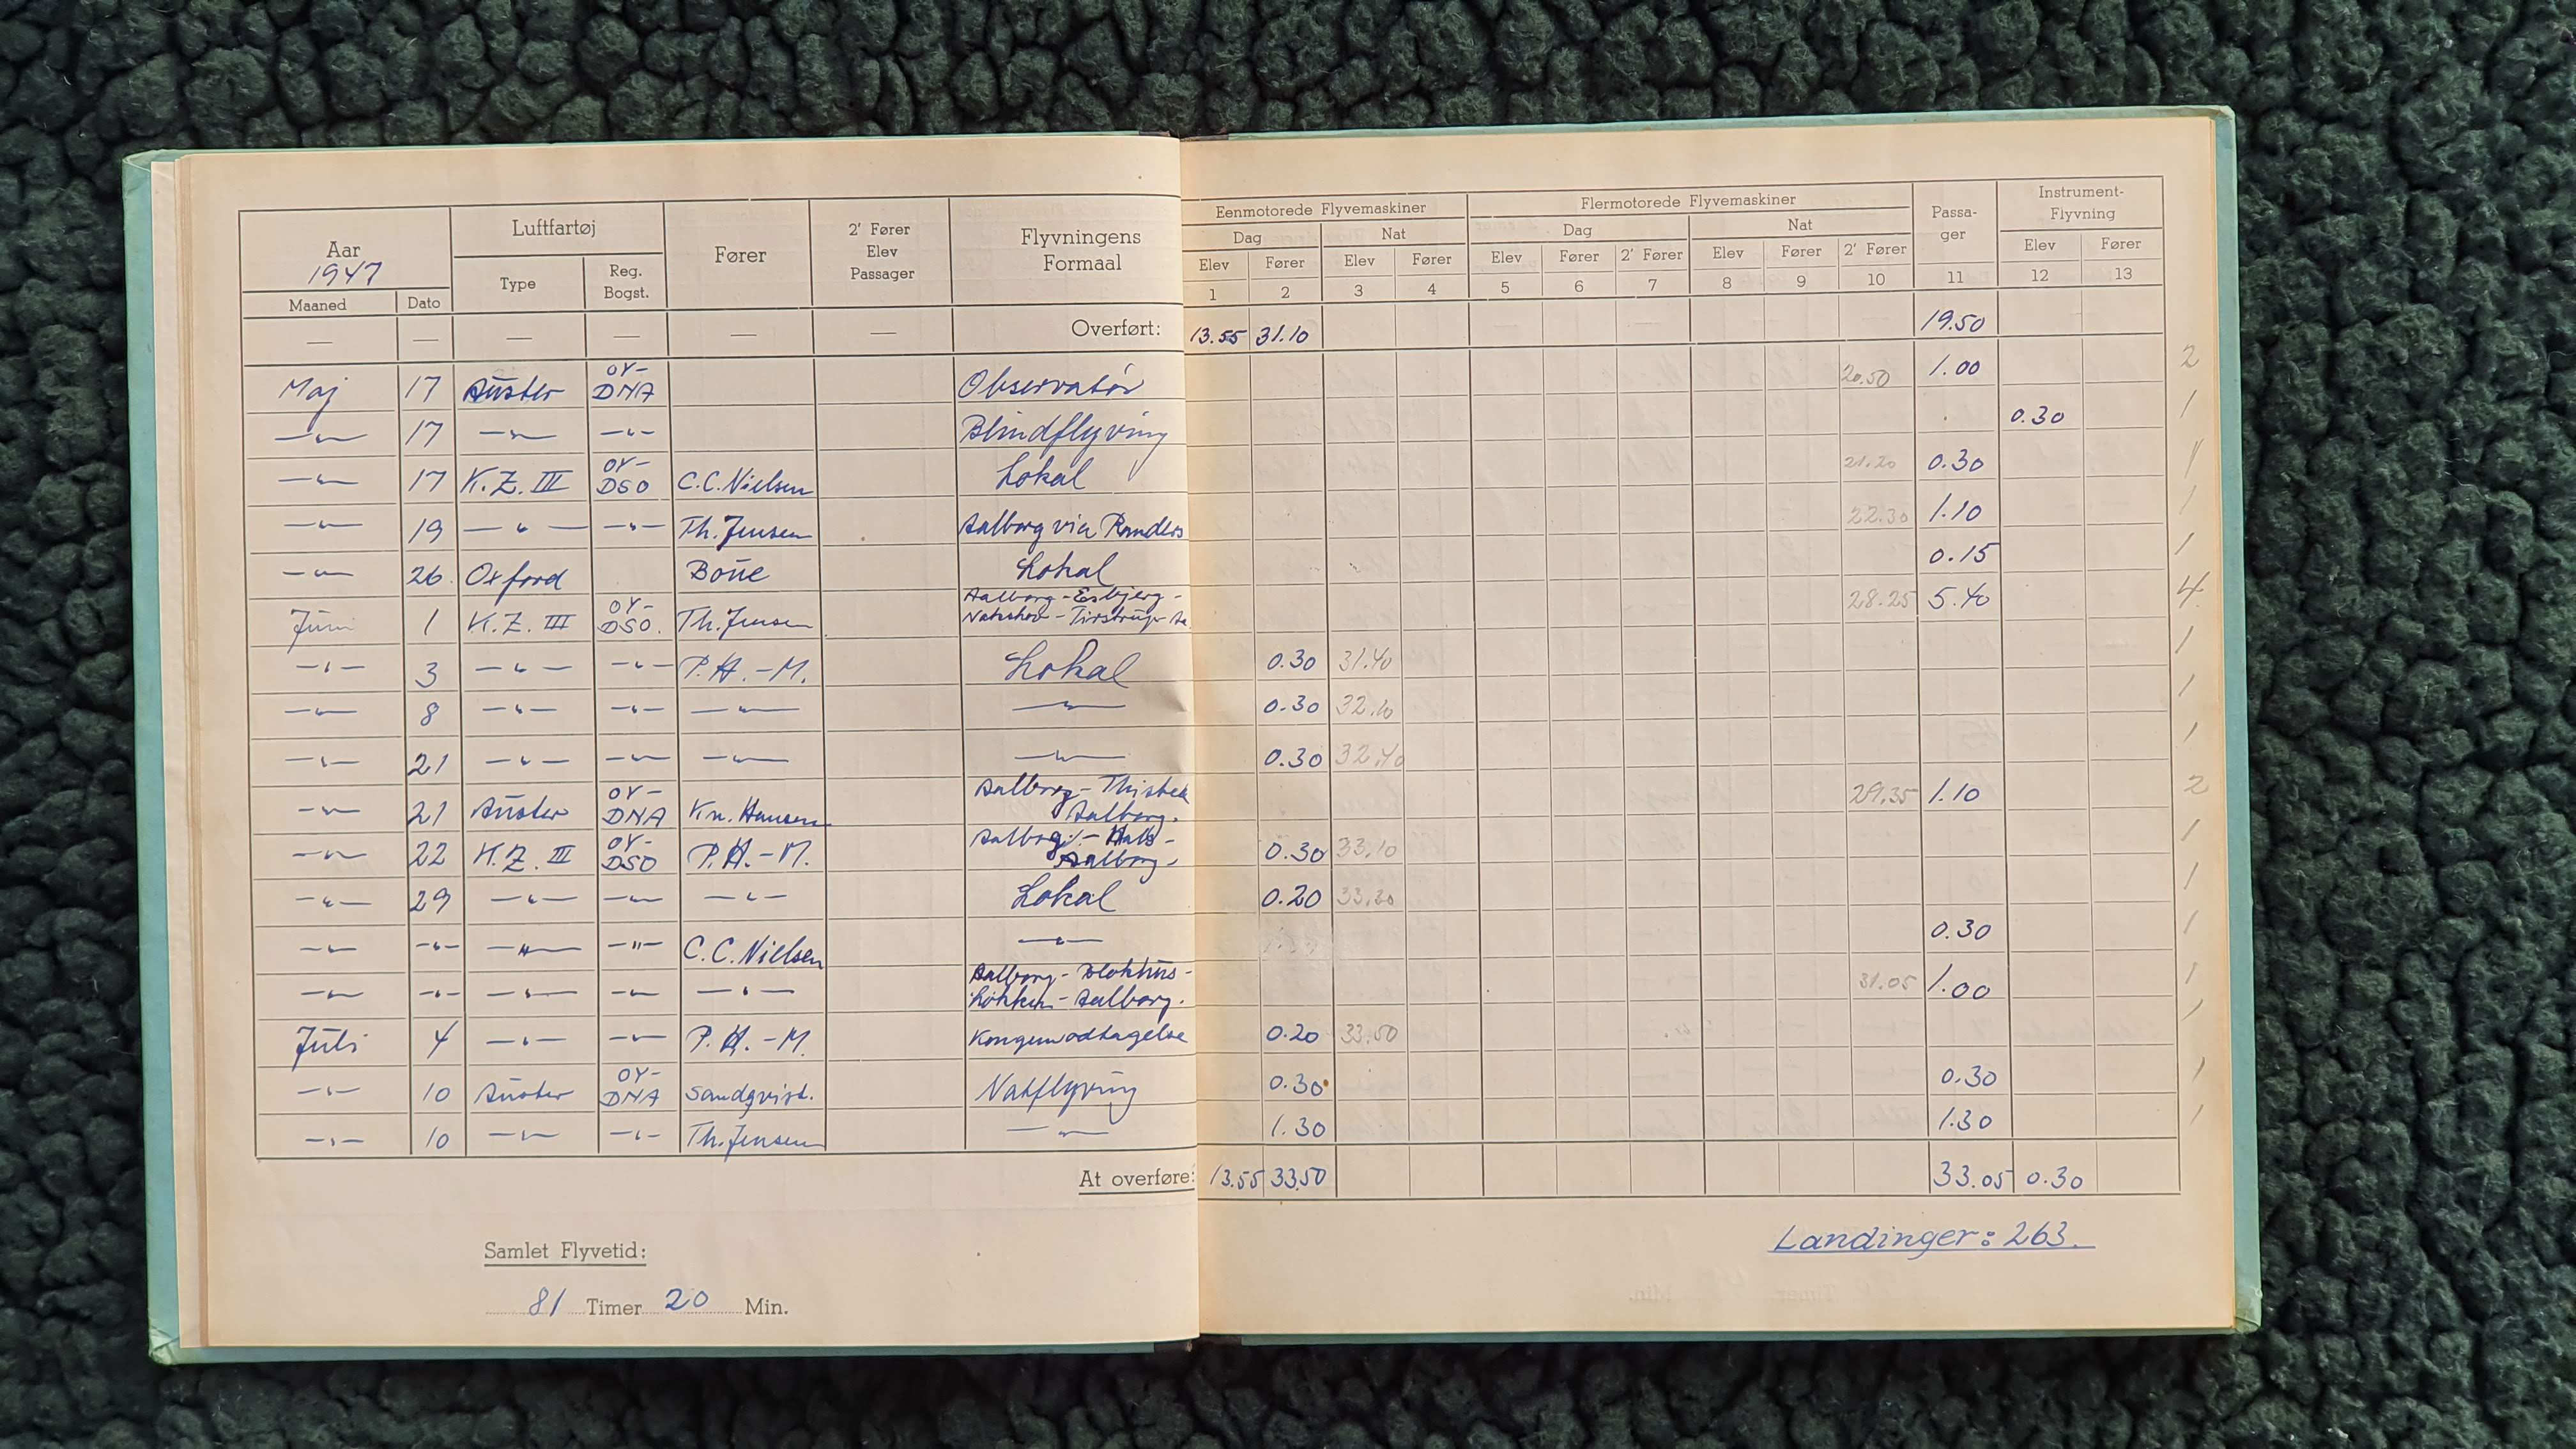 Aar
1947
Luftfartøj
Fører
2' Fører
Elev
Passager
Flyvningens
Formaal
Eenmotorede Flyvemaskiner
Flermotorede Flyvemaskiner
Passa-
ger
Instrument-
Flyvning
Maaned Dato Type Reg.
Bogst.
Dag Nat Dag Nat
Elev Fører Elev Fører Elev Fører 2' Fører Elev Fører 2' Fører Elev Fører
1 2 3 4 5 6 7 8 9 10 11 12 13
— — — — — — Overført: 13.55 31.10 19.50
Maj 17 Auster OY-DNA Observatör 20.50 1.00 2
—"— 17 —"— —"— Blindflyvning 0.30 1
—"— 17 K.Z. III OY-DSO C.C. Nielsen Lokal 21.20 0.30 1
—"— 19 —"— —"— Th. Jensen Aalborg via Randers 22.30 1.10 1
—"— 26. Oxford Boüe Lokal 0.15 1
Juni 1 K.Z. III OY-DSO. Th. Jensen Aalborg - Esbjerg -
Nakskov - Tirstrup - Aa. 28.25 5.40 4
—"— 3 —"— —"— P.H.-M. Lokal 0.30 31.40 1
—"— 8 —"— —"— —"— —"— 0.30 32.10 1
—"— 21 —"— —"— —"— —"— 0.30 32.40 1
—"— 21 Auster OY-DNA Kn. Hansen Aalborg - Thisted
Aalborg. 29.35 1.10 2
—"— 22 K.Z. III OY-DSO P.H.-M. Aalborg - Hals -
Aalborg. 0.30 33.10 1
—"— 29 —"— —"— —"— Lokal 0.20 1
—"— —"— —"— —"— C.C. Nielsen —"— 0.30 1
—"— —"— —"— —"— —"— Aalborg - Blokhus -
Løkken - Aalborg. 31.05 1.00 1
Juli 4 —"— —"— P.H.-M. Kongemodtagelse 0.20 33.50 1
—"— 10 Auster OY-DNA Sandqvist. Natflyvning 0.30 0.30 1
—"— 10 —"— —"— Th. Jensen —"— 1.30 1.30 1
At overføre: 13.55 33.50 33.05 0.30
Samlet Flyvetid:
81 Timer 20 Min.
Landinger: 263.